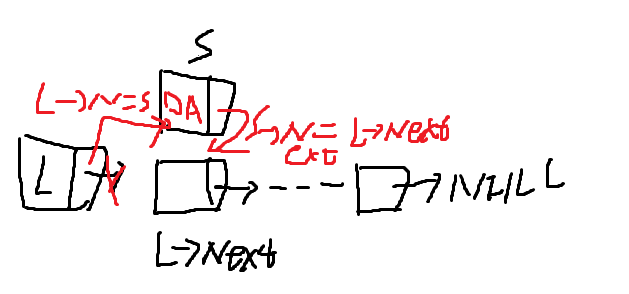 S
L→N=S
DA
S→Next=L→Next
L
NULL
L→Next